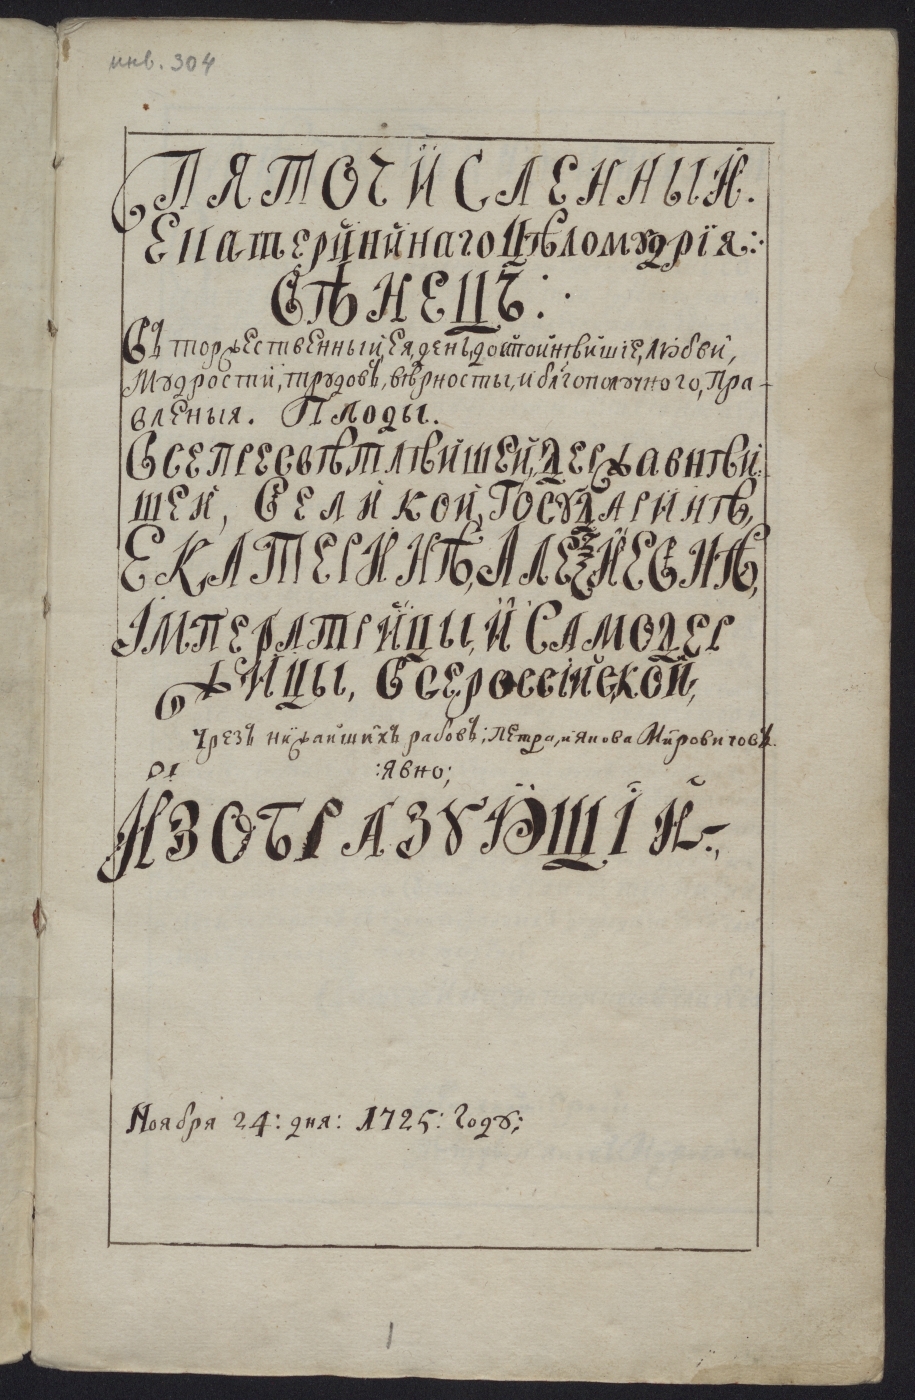 инв. 304
ПЯТОЧИСЛЕННЫЙ.
Екатерининаго Цѣломудрїя:·
ВѢНЕЦЪ:·
Въ торжественный, Ея, день, достойнѣйшїе, любви,
Мудрости, трудовъ, вѣрности, и благополучного, Пра-
вления. Плоды.
ВСЕПРЕСВѢТЛѢЙШЕЙ, ДЕРЖАВНѢЙ
ШЕЙ, ВЕЛИКОЙ, ГОСУДАРИНѢ,
ЕКАТЕРИНѢ, АЛЕѮИЕВНѢ,
ІМПЕРАТРИЦЫ, И САМОДЕР
ЖИЦЫ, Всероссійской,
Чрезъ нижайшихъ рабовъ; Петра, и Якова Мировичовъ.
:Явно;
ИЗОБРАЗУЮЩІЙ.,
Ноября 24: дня: 1725: Году;
1